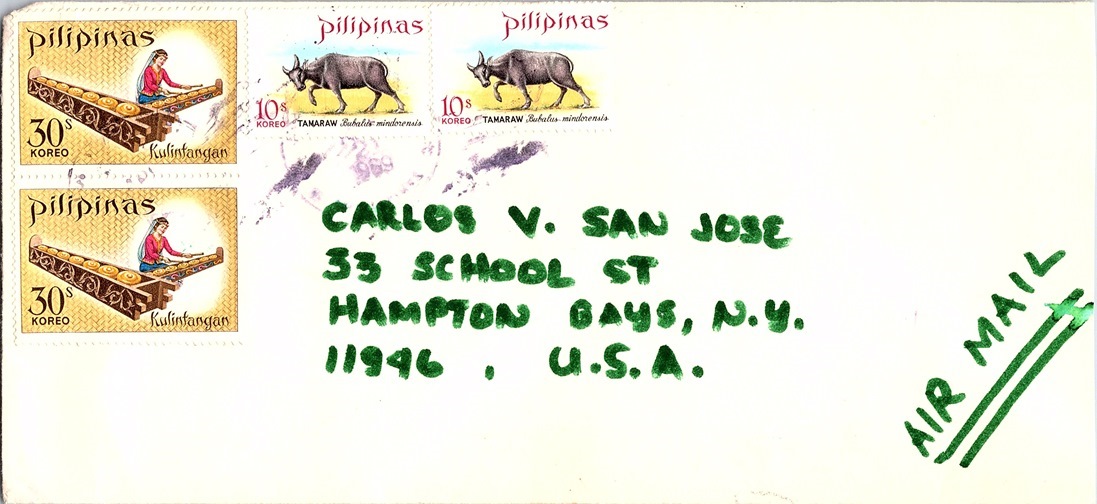 pilipinas
30s
KOREO
Kulintangan
pilipinas
10s
KOREO
TAMARAW Bubalus mindorensis
pilipinas
10s
KOREO
TAMARAW Bubalus mindorensis
pilipinas
30s
KOREO
Kulintangan
1969
CARLOS V. SAN JOSE
33 SCHOOL ST
HAMPTON BAYS, N.Y.
11946 , U.S.A.
AIR MAIL